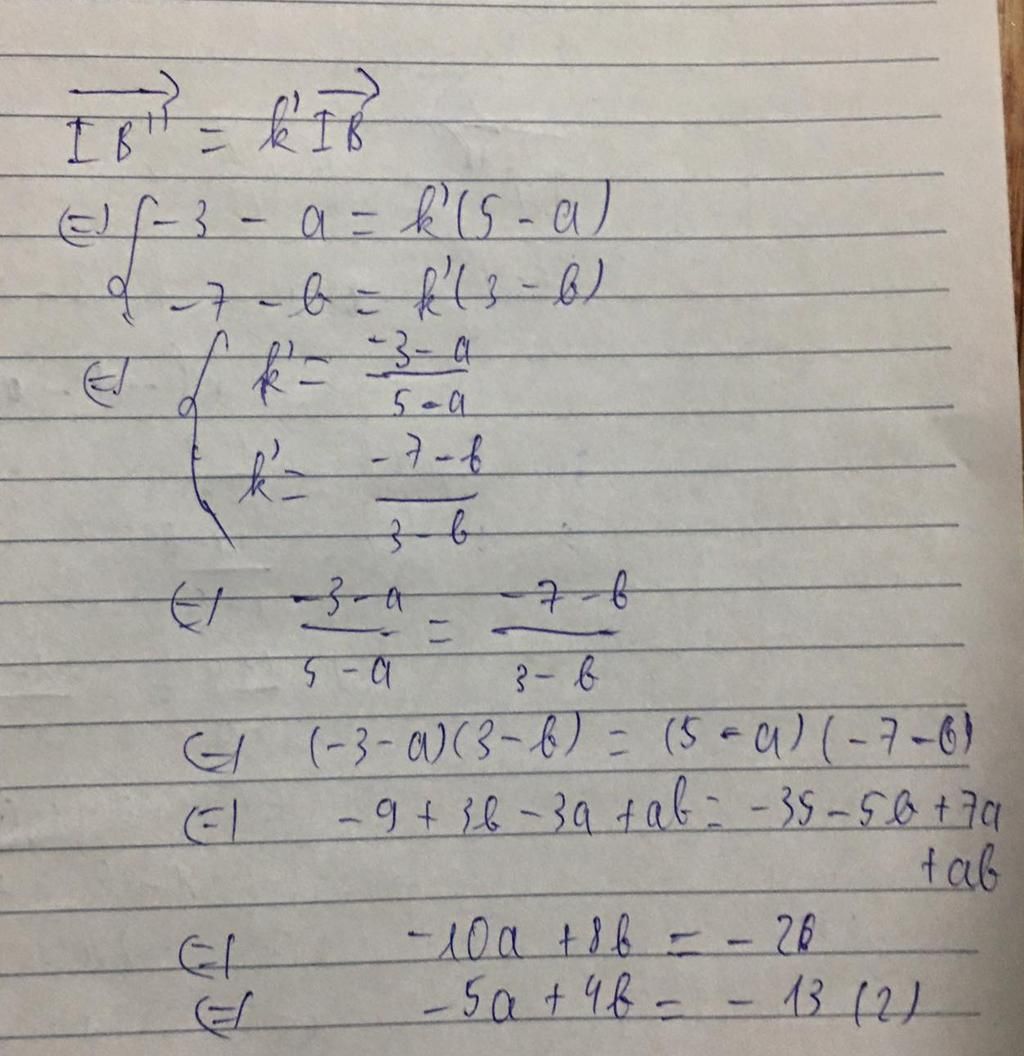 IB'' = k'IB
⇔ { -3 - a = k'(5 - a)
-7 - b = k'(3 - b)
⇔ { k' = (-3 - a)/(5 - a)
k' = (-7 - b)/(3 - b)
⇔ (-3 - a)/(5 - a) = (-7 - b)/(3 - b)
⇔ (-3 - a)(3 - b) = (5 - a)(-7 - b)
⇔ -9 + 3b - 3a + ab = -35 - 5b + 7a
+ ab
⇔ -10a + 8b = -26
⇔ -5a + 4b = -13 (2)